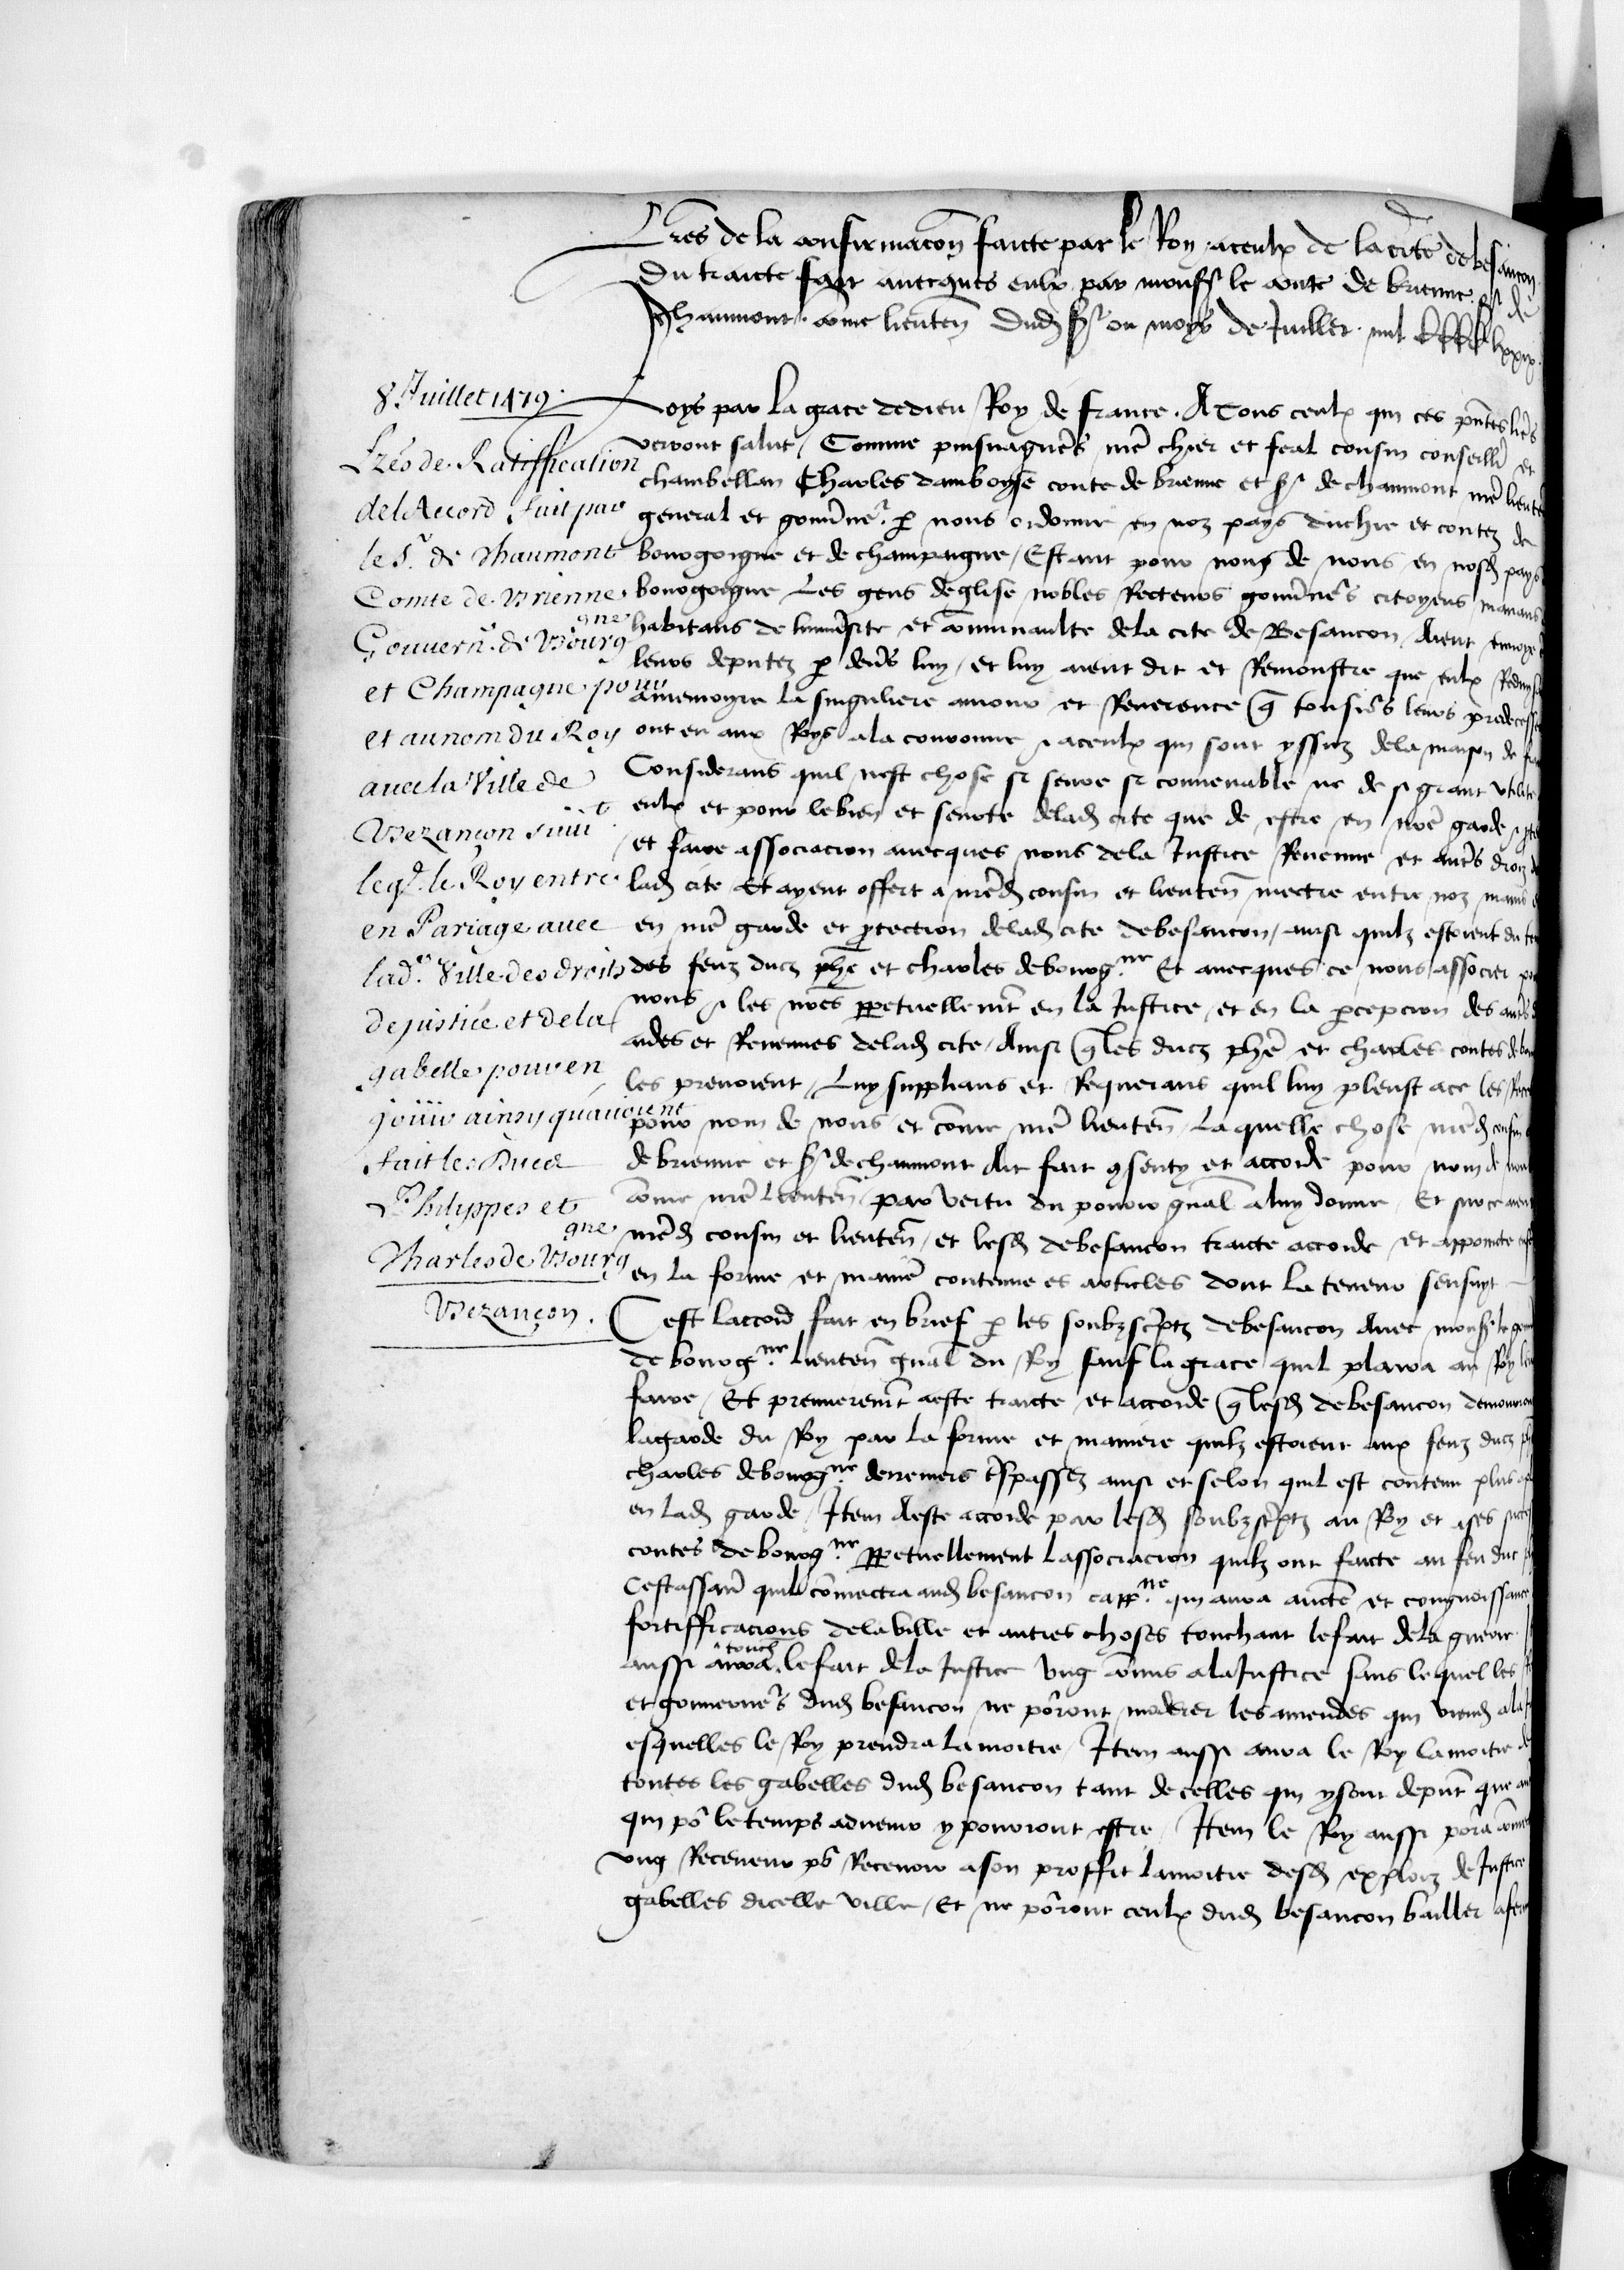 Lres de la confirmacon faicte par le Roy aceulx de la cite de besancon
Du traicte fait auecques eulx par monsr le conte de brienne sr de
Chaumont come lieuten dud sr ou moys de Juillet mil
8 Juillet 1479.
Lres de Ratiffication
de l'Accord fait par
le Sr. de Chaumont
Comte de Brienne
Gouvern.r de Bourgne
et Champagne pour
et au nom du Roy
avec la Ville de
Bezançon suiv.t
leq.l le Roy entre
en Pariage avec
lad.e Ville des droits
de justice et de la
gabelle pour en
jouir ainsy qu'avoient
fait les Ducs
Philippes et
Charles de Bourgne
Bezançon.
Loys par la grace de dieu Roy de france. A Tous ceulx qui ces pntes lres
verront salut Comme puisnagueres nre chier et feal cousin conseiller et
chambellan Charles damboyse conte de brienne et sr de chaumont nre lieuten
general et gouuerner p nous ordonne en noz pays duchie et contez de
bourgoigne et de champaigne Estant pour nous de nous en nosd pays
bourgoigne Les gens deglise nobles Recteurs gouuerners citoyens manans
habitans de luniuersite et communaulte dela cite de Besancon Aient enuoye
leurs deputez p deuers luy et luy aient dit et Remonstre que eulx
amemoyre la singuliere amour et Reuerence q tousiours leurs predecess
ont eu aux Roys ala couronne et aceulx qui sont yssuz dela maison de
Considerans quil nest chose si seure si conuenable ne de si grant vtilite
eulx et pour le bien et seurte delad cite que de estre en nre garde
et faire associacion auecques nous dela Justice Reuenue et autres droiz
lad cite Et ayent offert a nred cousin et lieuten mectre entre noz mains
en nre garde et ptection delad cite debesancon ainsi quilz estoient du
des feuz ducz phe et charles de bourgne Et auecques ce nous associer
nous et les nres ppetuellemt en la Justice et en la pcepcion des
aides et Reuenues delad cite Ainsi q les ducz phe et charles contes de
les prenoient Luy supplians et Requerans quil luy pleust ace les
pour nom de nous et come nre lieuten La quelle chose nred cousin
de brienne et sr de chaumont Ait fait consenty et accorde pour nom de nous
come nre lieuten par vertu du pouoir gnal aluy donne Et sur ce aient
nred cousin et lieuten et lesd debesancon traicte accorde et appoincte
en la forme et maniere contenue es articles dont la teneur sensuyt
Cest laccord fait en brief p les soubzscriptz debesancon Auec monsr le
de bourgne lieuten gnal du Roy sauf la grace quil plaira au Roy
faire Et premieremt aeste traicte et accorde q lesd debesancon demourront
lagarde du Roy par la forme et maniere quilz estoient aux feuz ducz
charles de bourgne derreniers trespassez ainsi et selon quil est contenu plus
en lad garde Item Aeste accorde par lesd soubzscriptz au Roy et ases
contes de bourgne ppetuellement lassociacion quilz ont faicte au feu duc
Cestassauoir quil comectra aud besancon cappne qui aura aucte et congnoissance
fortifficacions dela ville et autres choses touchant lefait dela guerre
aussi aura touch lefait dela Justice vng comis ala Justice sans lequel les
et gouuerners dud besancon ne porront moderer les amendes qui viend ala
esquelles le Roy prendra la moitie Item aussi aura le Roy la moitie
toutes les gabelles dud besancon tant de celles qui y sont depnt que
qui por le temps aduenir y pourront estre Item le Roy aussi porra
vng Receueur por Receuoir ason proffit la moitie desd exploiz de Justice
gabelles dicelle ville Et ne porront ceulx dud besancon bailler